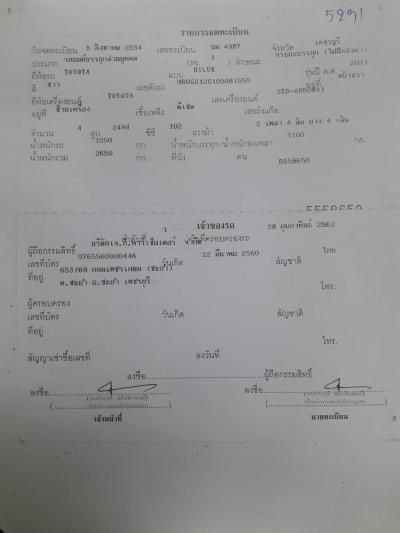 5291
รายการจดทะเบียน
วันจดทะเบียน 5 สิงหาคม 2554 เลขทะเบียน บม 4987 จังหวัด เพชรบุรี
ประเภท รถยนต์บรรทุกส่วนบุคคล (รย. 3 ) ลักษณะ กระบะบรรทุก
ยี่ห้อรถ TOYOTA แบบ HILUX รุ่นปี ค.ศ. 2011
สี ขาว เลขตัวรถ MR0GS12G105061555
ยี่ห้อเครื่องยนต์ TOYOTA เลขเครื่องยนต์
อยู่ที่ เชื้อเพลิง ดีเซล เลขถังแก๊ส
จำนวน 4 สูบ 2494 ซีซี 102 แรงม้า 2 เพลา 4 ล้อ ยาง 4 เส้น
น้ำหนักรถ 1550 กก. น้ำหนักบรรทุก/น้ำหนักลงเพลา 1100 กก.
น้ำหนักรวม 2650 กก. ที่นั่ง คน 5558650
5558650
1 เจ้าของรถ 28 กุมภาพันธ์ 2562
ผู้ถือกรรมสิทธิ์
เลขที่บัตร 0765560000446 วันเกิด 22 มีนาคม 2560 สัญชาติ ไทย
ที่อยู่ 653/69 ถนนเพชรเกษม (ชะอำ)
ต.ชะอำ อ.ชะอำ เพชรบุรี โทร.
ผู้ครอบครอง
เลขที่บัตร วันเกิด สัญชาติ
ที่อยู่
โทร.
สัญญาเช่าซื้อเลขที่ ลงวันที่
ลงชื่อ ผู้ถือกรรมสิทธิ์
ลงชื่อ ลงชื่อ
เจ้าหน้าที่ นายทะเบียน